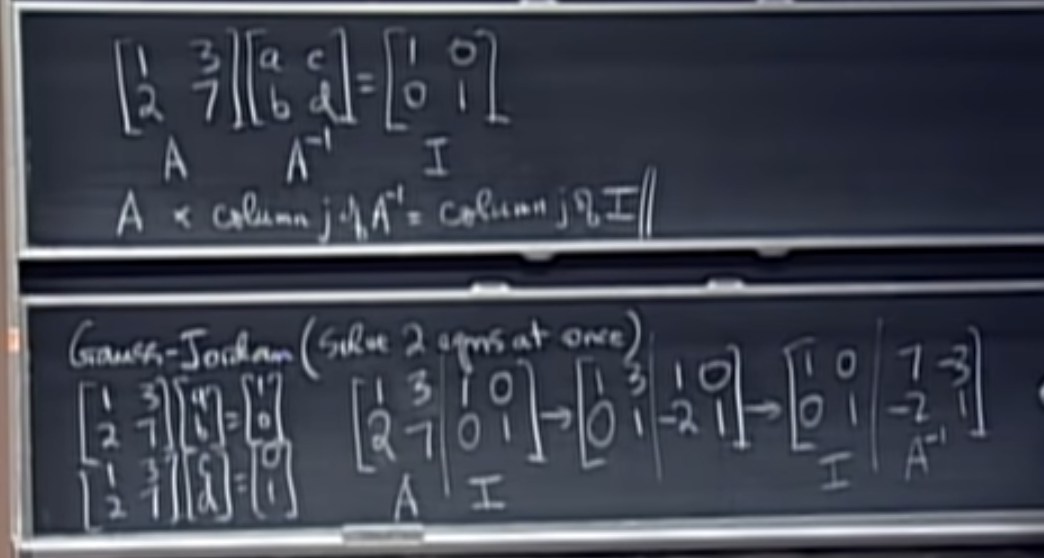 [1 3; 2 7] [a c; b d] = [1 0; 0 1]
A A⁻¹ I
A × column j of A⁻¹ = column j of I
Gauss-Jordan (Solve 2 eqns at once)
[1 3; 2 7] [a; b] = [1; 0]
[1 3; 2 7] [c; d] = [0; 1]
[1 3 | 1 0; 2 7 | 0 1] → [1 3 | 1 0; 0 1 | -2 1] → [1 0 | 7 -3; 0 1 | -2 1]
A I I A⁻¹